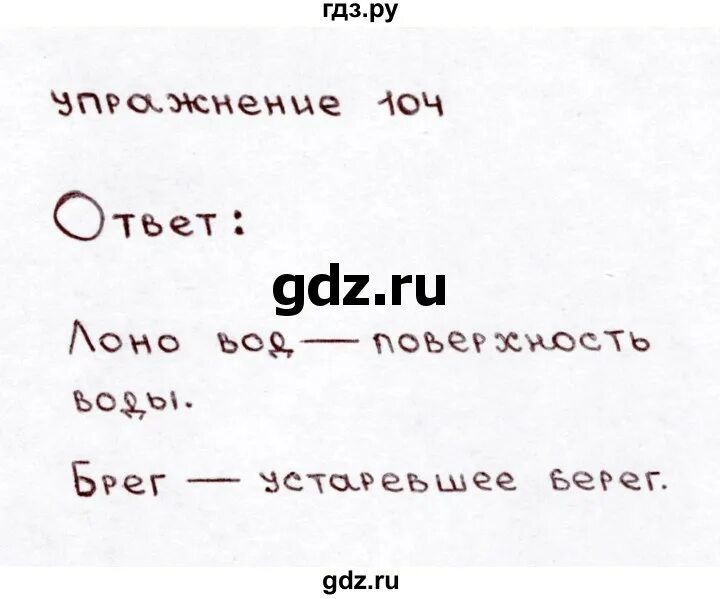 гдз.ру
упражнение 104
Ответ:
gdz.ru
Лоно вод — поверхность
воды.
Брег — устаревшее берег.
gdz.ru